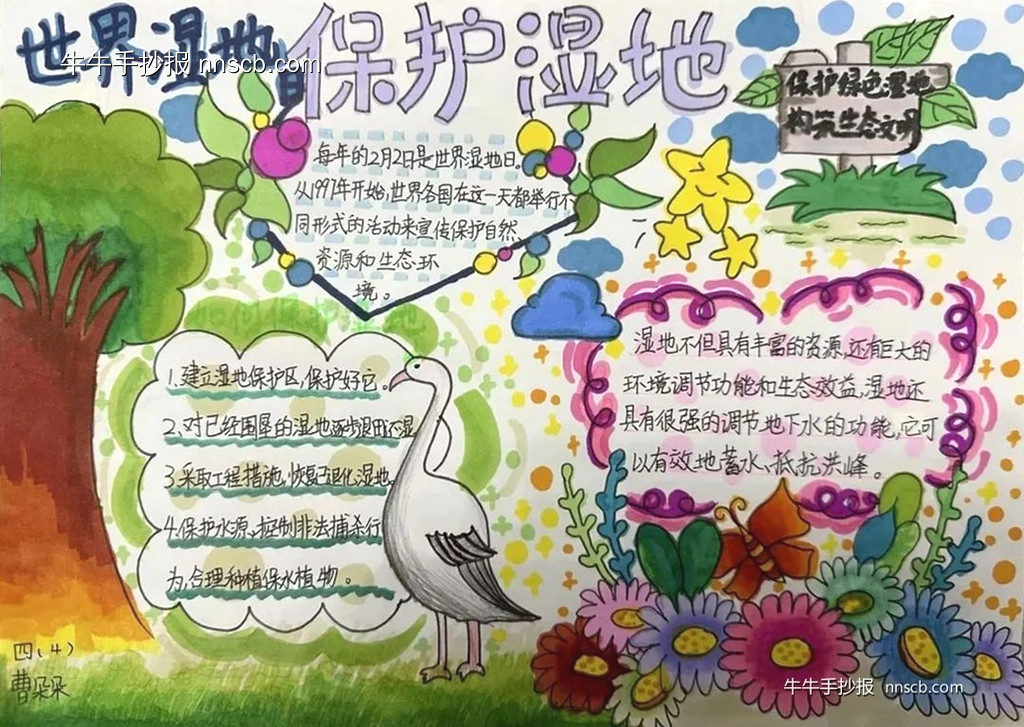 世界湿地日
保护湿地
牛牛手抄报 nnscb.com
保护绿色湿地
构筑生态文明
每年的2月2日是世界湿地日。
从1997年开始,世界各国在这一天都举行不
同形式的活动来宣传保护自然
资源和生态环
境。
如何保护湿地
1.建立湿地保护区,保护好它。
2、对已经围垦的湿地逐步退田还湿
3.采取工程措施,恢复已退化湿地。
4.保护水源、控制非法捕杀行
为,合理种植保水植物。
湿地不但具有丰富的资源,还有巨大的
环境调节功能和生态效益,湿地还
具有很强的调节地下水的功能,它可
以有效地蓄水、抵抗洪峰。
四(4)
曹朵朵
牛牛手抄报 nnscb.com